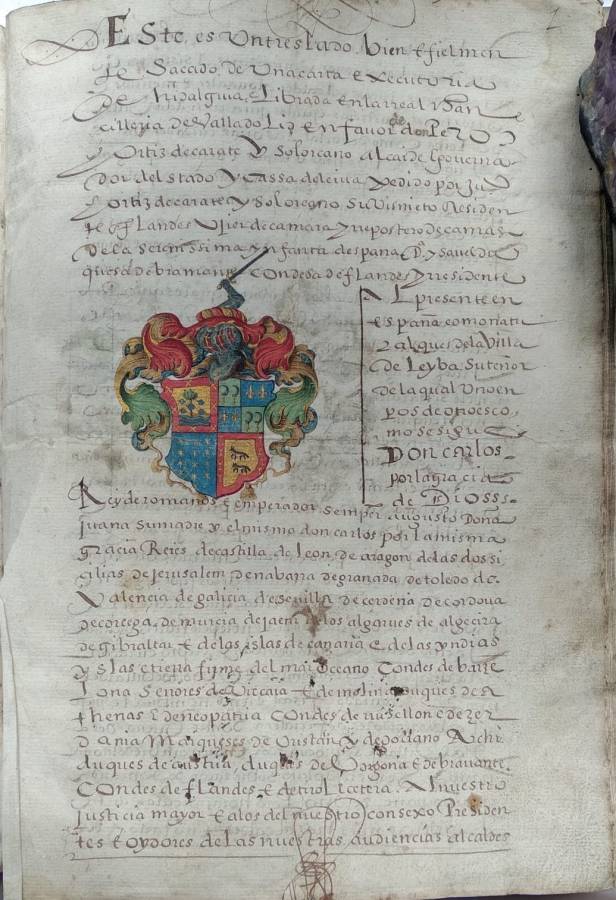 Este es Untreslado bien E fielmen
te Sacado de Una carta Executoria
De hidalguia Librada en la rreal chan
cilleria de Vallado Lid En favor de don Pero
Ortiz de carate Y Solorcano alcaide Y governa
dor del stado Y Cassa de leiva pedido por juº
Ortiz de carate Y Solorcano Su Visnieto Residen
te en flandes Vjier de camara y repostero de camas
de la serenissima ynfanta despana Dª ysavel du
quesa de bramante condesa de flandes y residente
AL presente en
España como natu
ral ques de la Villa
de Leyba Su tenor
de la qual Uno en
pos de otro es co
mo se sigue
DON carlos
por la gracia
de DIOSS
Rey de romanos E emperador semper augusto Doña
juana su madre y el mismo don carlos por la misma
gracia Reies de castilla de leon de aragon de las dos si
cilias de jerusalem de nabarra de granada de toledo de
Valencia de galicia de sevilla de cerdeña de cordova
de corcega de murcia de jaem de los algarves de algecira
de gibraltar E de las islas de canaria E de las yndias
yslas e tierra firme del mar oceano Condes de barze
lona Senores de Vizcaia E de molina Duques de a
thenas E de neopatria Condes de ruisellon E de zer
dania Marqueses de Oristan y de gociano Archi
duques de austria duques de Vorgoña E de bravante
Condes de flandes E de tirol icetera A nuestro
justicia mayor E a los del nuestro consexo Presiden
tes E oydores de las nuestras audiencias alcaldes